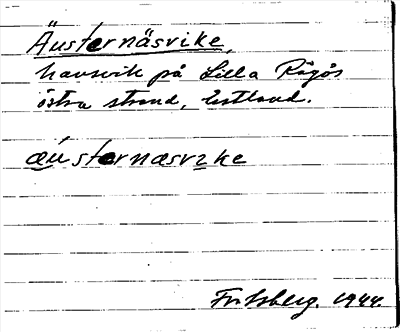 Äusternäsvike,
havsvik på Lilla Rågös
östra strand, Estland.
æústernæsvike
1944.